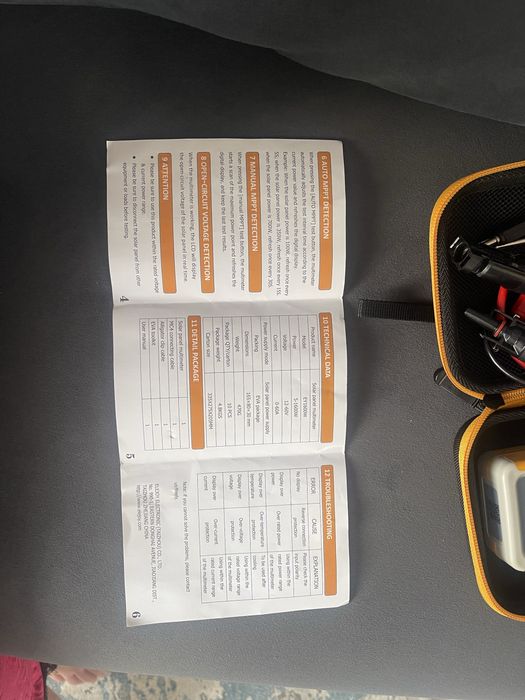 6 AUTO MPPT DETECTION
When pressing the [AUTO MPPT] test button, the multimeter
automatically adjusts the test interval time according to the
current power value and refreshes the digital display.
Example: When the solar panel power is 100W, refresh once every
5S; when the solar panel power is 200W, refresh once every 15S
when the solar panel power is 700W, refresh once every 30S.
7 MANUAL MPPT DETECTION
When pressing the [manual MPPT] test button, the multimeter
starts a scan of the maximum power point and refreshes the
digital display, and keep the last test results.
8 OPEN-CIRCUIT VOLTAGE DETECTION
When the multimeter is working, the LCD will display
the open circuit voltage of the solar panel in real time.
9 ATTENTION
• Please be sure to use this product within the rated voltage
& current power range.
• Please be sure to disconnect the solar panel from other
equipment or loads before testing.
4
10 TECHNICAL DATA
Product name Solar panel multimeter
Model EY1600W
Power 5-1600W
Voltage 12-60V
Current 0-60A
Power supply mode Solar panel power supply
Packing EVA package
Dimensions 161×80×30 mm
Weight 470G
Package QTY/carton 10 PCS
Package weight 4.8KGS
Carton size
11 DETAIL PACKAGE
Solar panel multimeter 1
MC4 connecting cable 1
Alligator clip cable 1
EVA toolkit 1
User manual 1
5
12 TROUBLESHOOTING
ERROR CAUSE EXPLANATION
No display Reverse connection protection Please check the input polarity
Display over power Over rated power Using within the rated power range of the multimeter
Display over temperature Over temperature protection To be used after cooling
Display over voltage Over voltage protection Using within the rated voltage range of the multimeter
Display over current Over current protection Using within the rated current range of the multimeter
Note: if you cannot solve the problems, please contact
us freely.
6